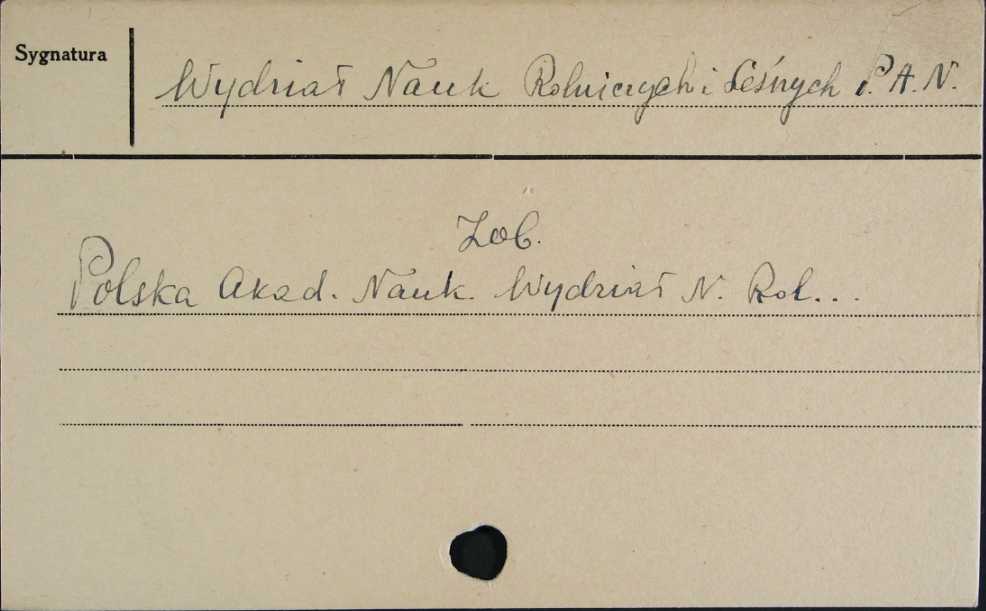 Sygnatura
Wydział Nauk Rolniczych i Leśnych P. A. N.
Zob.
Polska Akad. Nauk. Wydział N. Rol...